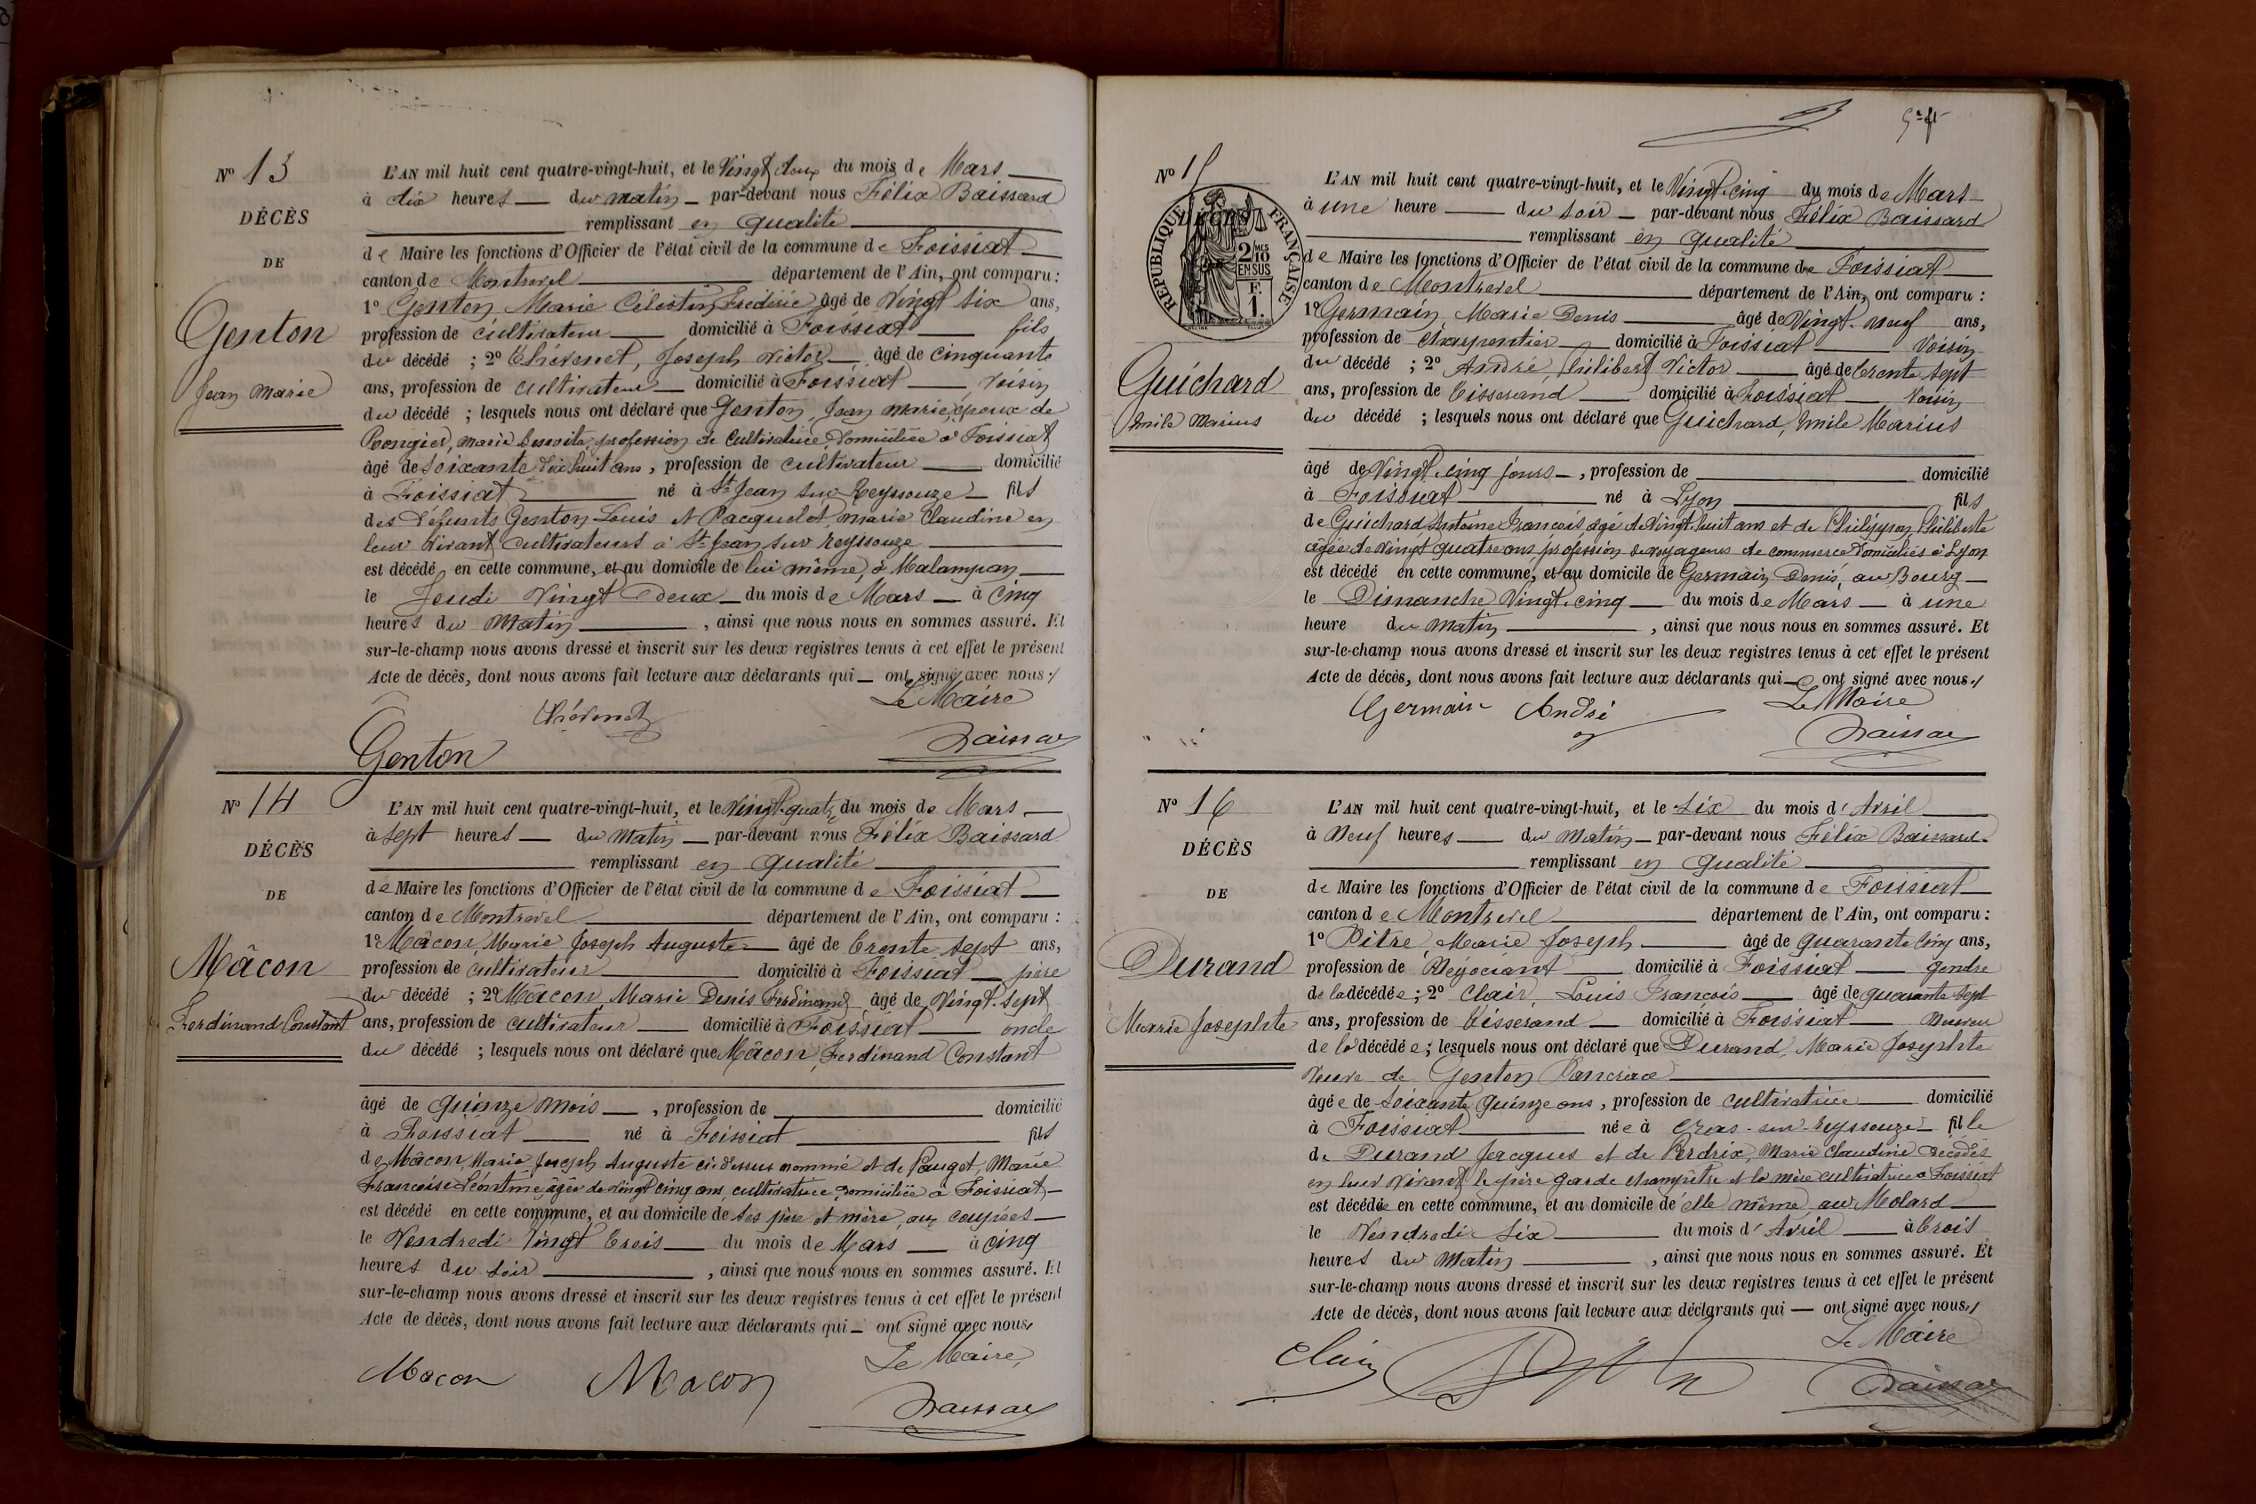 N° 13
DÉCÈS
DE
Genton
Jean Marie
L'AN mil huit cent quatre-vingt-huit, et le Vingt deux du mois de Mars
à dix heures du matin par-devant nous Félix Baissard
remplissant en qualité
de Maire les fonctions d'Officier de l'état civil de la commune de Foissiat
canton de Montrevel département de l'Ain, ont comparu :
1° Genton, Marie Célestin Frédéric âgé de Vingt six ans,
profession de cultivateur domicilié à Foissiat fils
du décédé ; 2° Thévenet, Joseph Victor âgé de cinquante
ans, profession de cultivateur domicilié à Foissiat, Voisin
du décédé ; lesquels nous ont déclaré que Genton, Jean Marie, époux de
Rongier, Marie profession de Cultivatrice, domiciliée à Foissiat
âgé de soixante dix huit ans, profession de cultivateur domicilié
à Foissiat né à St Jean sur Reyssouze fils
des défunts Genton Louis et Pacquelet, Marie Claudine en
leur vivant Cultivateurs à St Jean sur Reyssouze
est décédé en cette commune, et au domicile de lui même, à Malampan
le Jeudi Vingt Deux du mois de Mars à cinq
heures du Matin, ainsi que nous nous en sommes assuré. Et
sur-le-champ nous avons dressé et inscrit sur les deux registres tenus à cet effet le présent
Acte de décès, dont nous avons fait lecture aux déclarants qui ont signé avec nous./
Le Maire
Thévenet
Genton
N° 14
DÉCÈS
DE
Mâcon
Ferdinand Constant
L'AN mil huit cent quatre-vingt-huit, et le Vingt-quatre du mois de Mars
à Sept heures du Matin par-devant nous Félix Baissard
remplissant en qualité
de Maire les fonctions d'Officier de l'état civil de la commune de Foissiat
canton de Montrevel département de l'Ain, ont comparu :
1° Mâcon, Marie Joseph Auguste âgé de trente sept ans,
profession de cultivateur domicilié à Foissiat père
du décédé ; 2° Mâcon Marie Denis Ferdinand, âgé de Vingt-sept
ans, profession de cultivateur domicilié à Foissiat oncle
du décédé ; lesquels nous ont déclaré que Mâcon, Ferdinand Constant
âgé de quinze mois, profession de domicilié
à Foissiat né à Foissiat fils
de Mâcon, Marie Joseph Auguste ci-dessus nommé et de Pauget, Marie
Françoise Léontine, âgée de vingt cinq ans, cultivatrice, domiciliée à Foissiat
est décédé en cette commune, et au domicile de ses père et mère, aux coupées
le Vendredi Vingt trois du mois de Mars à cinq
heures du soir, ainsi que nous nous en sommes assuré. Et
sur-le-champ nous avons dressé et inscrit sur les deux registres tenus à cet effet le présent
Acte de décès, dont nous avons fait lecture aux déclarants qui ont signé avec nous,
Le Maire,
Macon Macon
N° 15
RÉPUBLIQUE FRANÇAISE
2/10 EN SUS
1 F.
Guichard
Emile Marius
L'AN mil huit cent quatre-vingt-huit, et le Vingt-cinq du mois de Mars
à une heure du soir par-devant nous Félix Baissard
remplissant en qualité
de Maire les fonctions d'Officier de l'état civil de la commune de Foissiat
canton de Montrevel département de l'Ain, ont comparu :
1° Germain, Marie Denis âgé de Vingt-neuf ans,
profession de charpentier domicilié à Foissiat Voisin
du décédé ; 2° André, Philibert Victor âgé de trente sept
ans, profession de tisserand domicilié à Foissiat, Voisin
du décédé ; lesquels nous ont déclaré que Guichard, Emile Marius
âgé de Vingt-cinq jours, profession de domicilié
à Foissiat né à Lyon fils
de Guichard Antoine François âgé de vingt huit ans et de Philippon, Philiberte
âgée de vingt quatre ans profession de voyageurs de commerce domiciliés à Lyon
est décédé en cette commune, et au domicile de Germain Denis, au Bourg
le Dimanche Vingt-cinq du mois de Mars à une
heure du matin, ainsi que nous nous en sommes assuré. Et
sur-le-champ nous avons dressé et inscrit sur les deux registres tenus à cet effet le présent
Acte de décès, dont nous avons fait lecture aux déclarants qui ont signé avec nous./
Le Maire
Germain André
N° 16
DÉCÈS
DE
Durand
Marie Josephte
L'AN mil huit cent quatre-vingt-huit, et le six du mois d'Avril
à Neuf heures du Matin par-devant nous Félix Baissard
remplissant en qualité
de Maire les fonctions d'Officier de l'état civil de la commune de Foissiat
canton de Montrevel département de l'Ain, ont comparu :
1° Pitre, Marie Joseph âgé de quarante cinq ans,
profession de Négociant domicilié à Foissiat gendre
de la décédée ; 2° Clair, Louis François âgé de quarante sept
ans, profession de tisserand domicilié à Foissiat Neveu
de la décédée ; lesquels nous ont déclaré que Durand, Marie Josephte
Veuve de Genton Pancrace
âgée de soixante quinze ans, profession de cultivatrice domicilié
à Foissiat née à Cras-sur-Reyssouze fille
de Durand Jacques et de Perdrix, Marie Claudine décédés
en leur vivant le père garde champêtre et la mère cultivatrice à Foissiat
est décédée en cette commune, et au domicile de elle même, au Molard
le Vendredi Six du mois d'Avril à trois
heures du Matin, ainsi que nous nous en sommes assuré. Et
sur-le-champ nous avons dressé et inscrit sur les deux registres tenus à cet effet le présent
Acte de décès, dont nous avons fait lecture aux déclarants qui — ont signé avec nous./
Le Maire
Clair